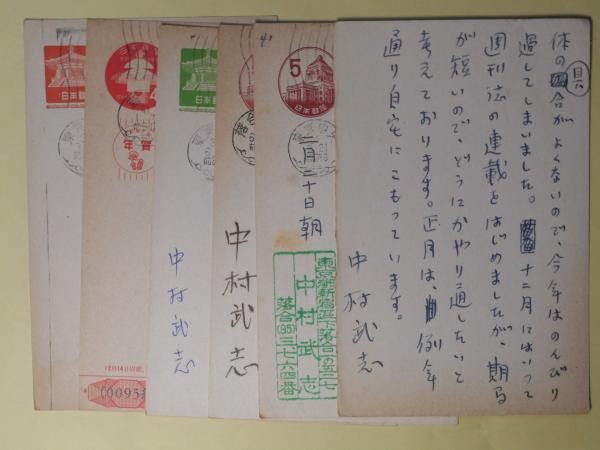 体の具合がよくないので、今年はのんびり
過してしまいました。十二月にはいって
週刊誌の連載をはじめましたが、期間
が短いので、どうにかやり通したいと
考えております。正月は、例年
通り自宅にこもっています。
中村武志
5
日本郵便
二月二十日朝
東京都新宿区下落合
中村武志
落合(95)三七六四番
中村武志
日本郵便
中村武志
12月14日以前
00095
日本郵便